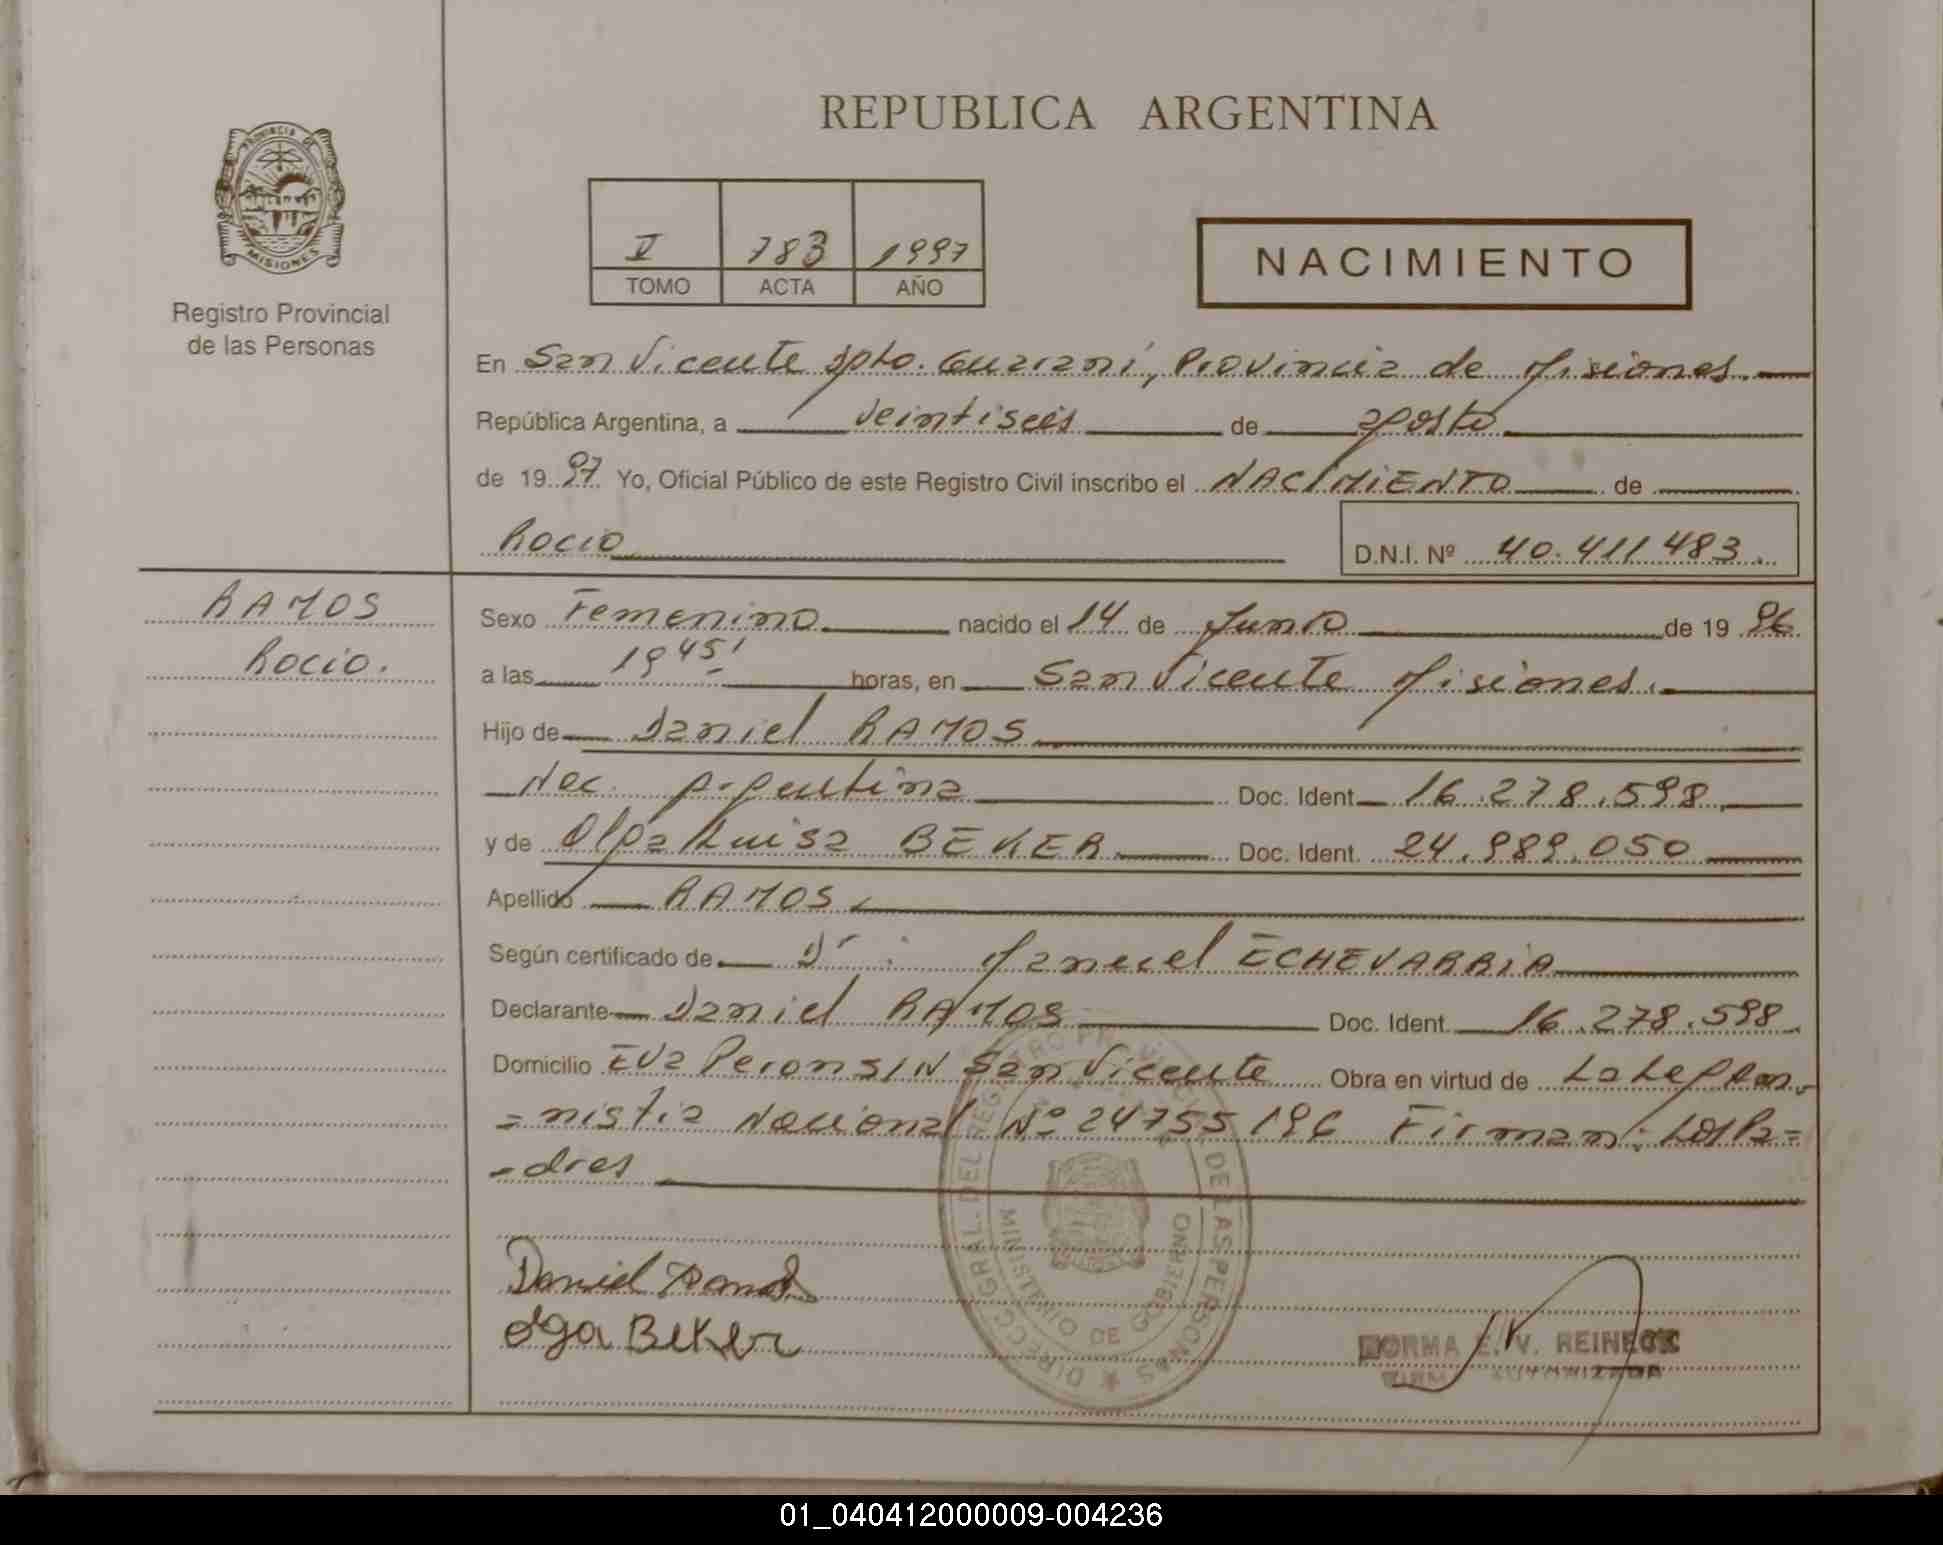 REPUBLICA ARGENTINA
PROVINCIA DE
MISIONES
Registro Provincial
de las Personas
V 783 1997
TOMO ACTA AÑO
NACIMIENTO
En San Vicente Dpto. Guarani, Provincia de Misiones.
República Argentina, a veintiseis de agosto
de 1997 Yo, Oficial Público de este Registro Civil inscribo el NACIMIENTO de
Rocio
D.N.I. Nº 40.411.483.
RAMOS
Rocio.
Sexo Femenino nacido el 14 de Junio de 1996.
a las 19 45' horas, en San Vicente Misiones.
Hijo de Daniel RAMOS
Nac. Argentina Doc. Ident. 16.278.598.
y de Olga Luisa BEKER Doc. Ident. 24.989.050
Apellido RAMOS.
Según certificado de Dr: Manuel ECHEVARRIA
Declarante Daniel RAMOS Doc. Ident. 16.278.598.
Domicilio Eva Peron S/N San Vicente Obra en virtud de La Ley de Am
=nistia Nacional Nº 24755/96 Firman: Los Pa=
=dres
Daniel Ramos
Olga Beker
DIRECC. GRAL. DEL REGISTRO PROVINCIAL DE LAS PERSONAS
MINISTERIO DE GOBIERNO
NORMA E. V. REINECK
FIRMA AUTORIZADA
01_040412000009-004236